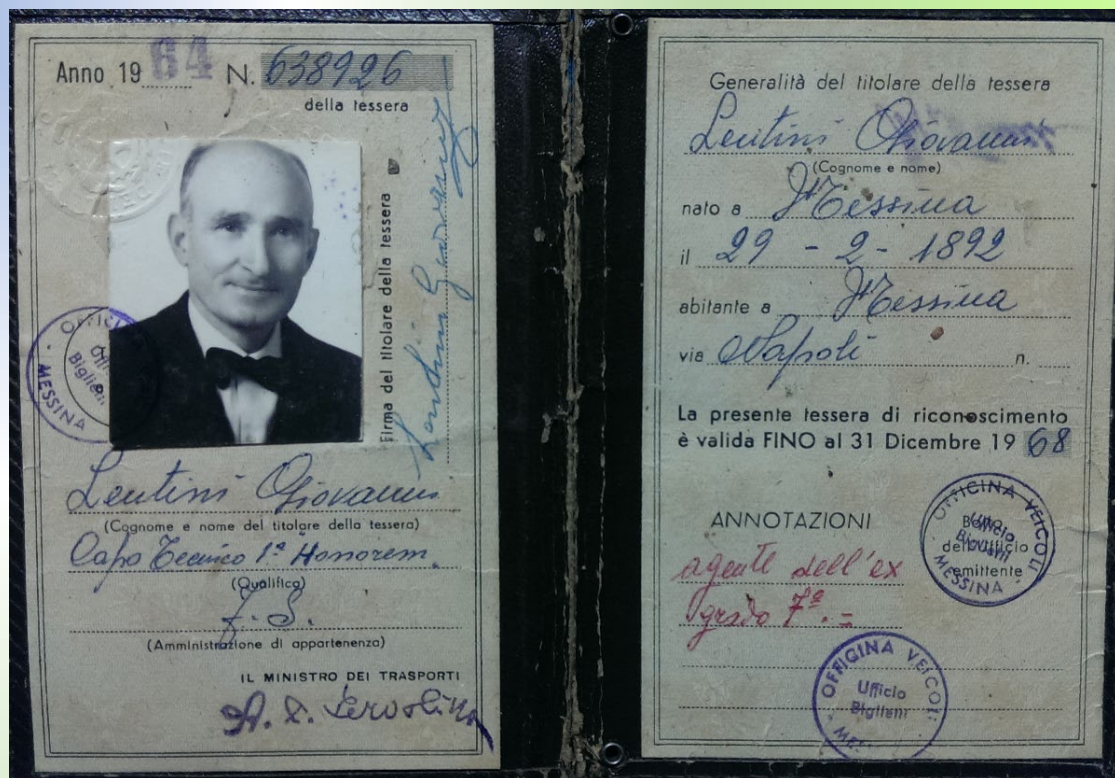 Anno 19 64 N. 638926
della tessera
Firma del titolare della tessera
Lentini Giovanni
OFFICI
MESSINA
Lentini Giovanni
(Cognome e nome del titolare della tessera)
Capo Tecnico 1ª Honorem.
(Qualifica)
F.S.
(Amministrazione di appartenenza)
IL MINISTRO DEI TRASPORTI
Generalità del titolare della tessera
Lentini Giovanni
(Cognome e nome)
nato a Messina
il 29 - 2 - 1892
abitante a Messina
via Napoli n.
La presente tessera di riconoscimento
è valida FINO al 31 Dicembre 19 68
ANNOTAZIONI
agente dell'ex
grado 7º. =
OFFICINA VEICOLI
dell'ufficio
emittente
MESSINA
OFFICINA VEICOLI
Ufficio
Biglietti